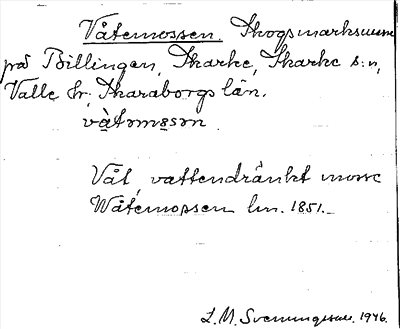 Våtemossen. Skogsmarksnamn
på Billingen, Skarke, Skarke s:n,
Valle hr, Skaraborgs län.
vàtəmǝsǝn
Våt, vattendränkt mosse
Wåtemossen lm. 1851.
L. M. Svenungsson. 1946.